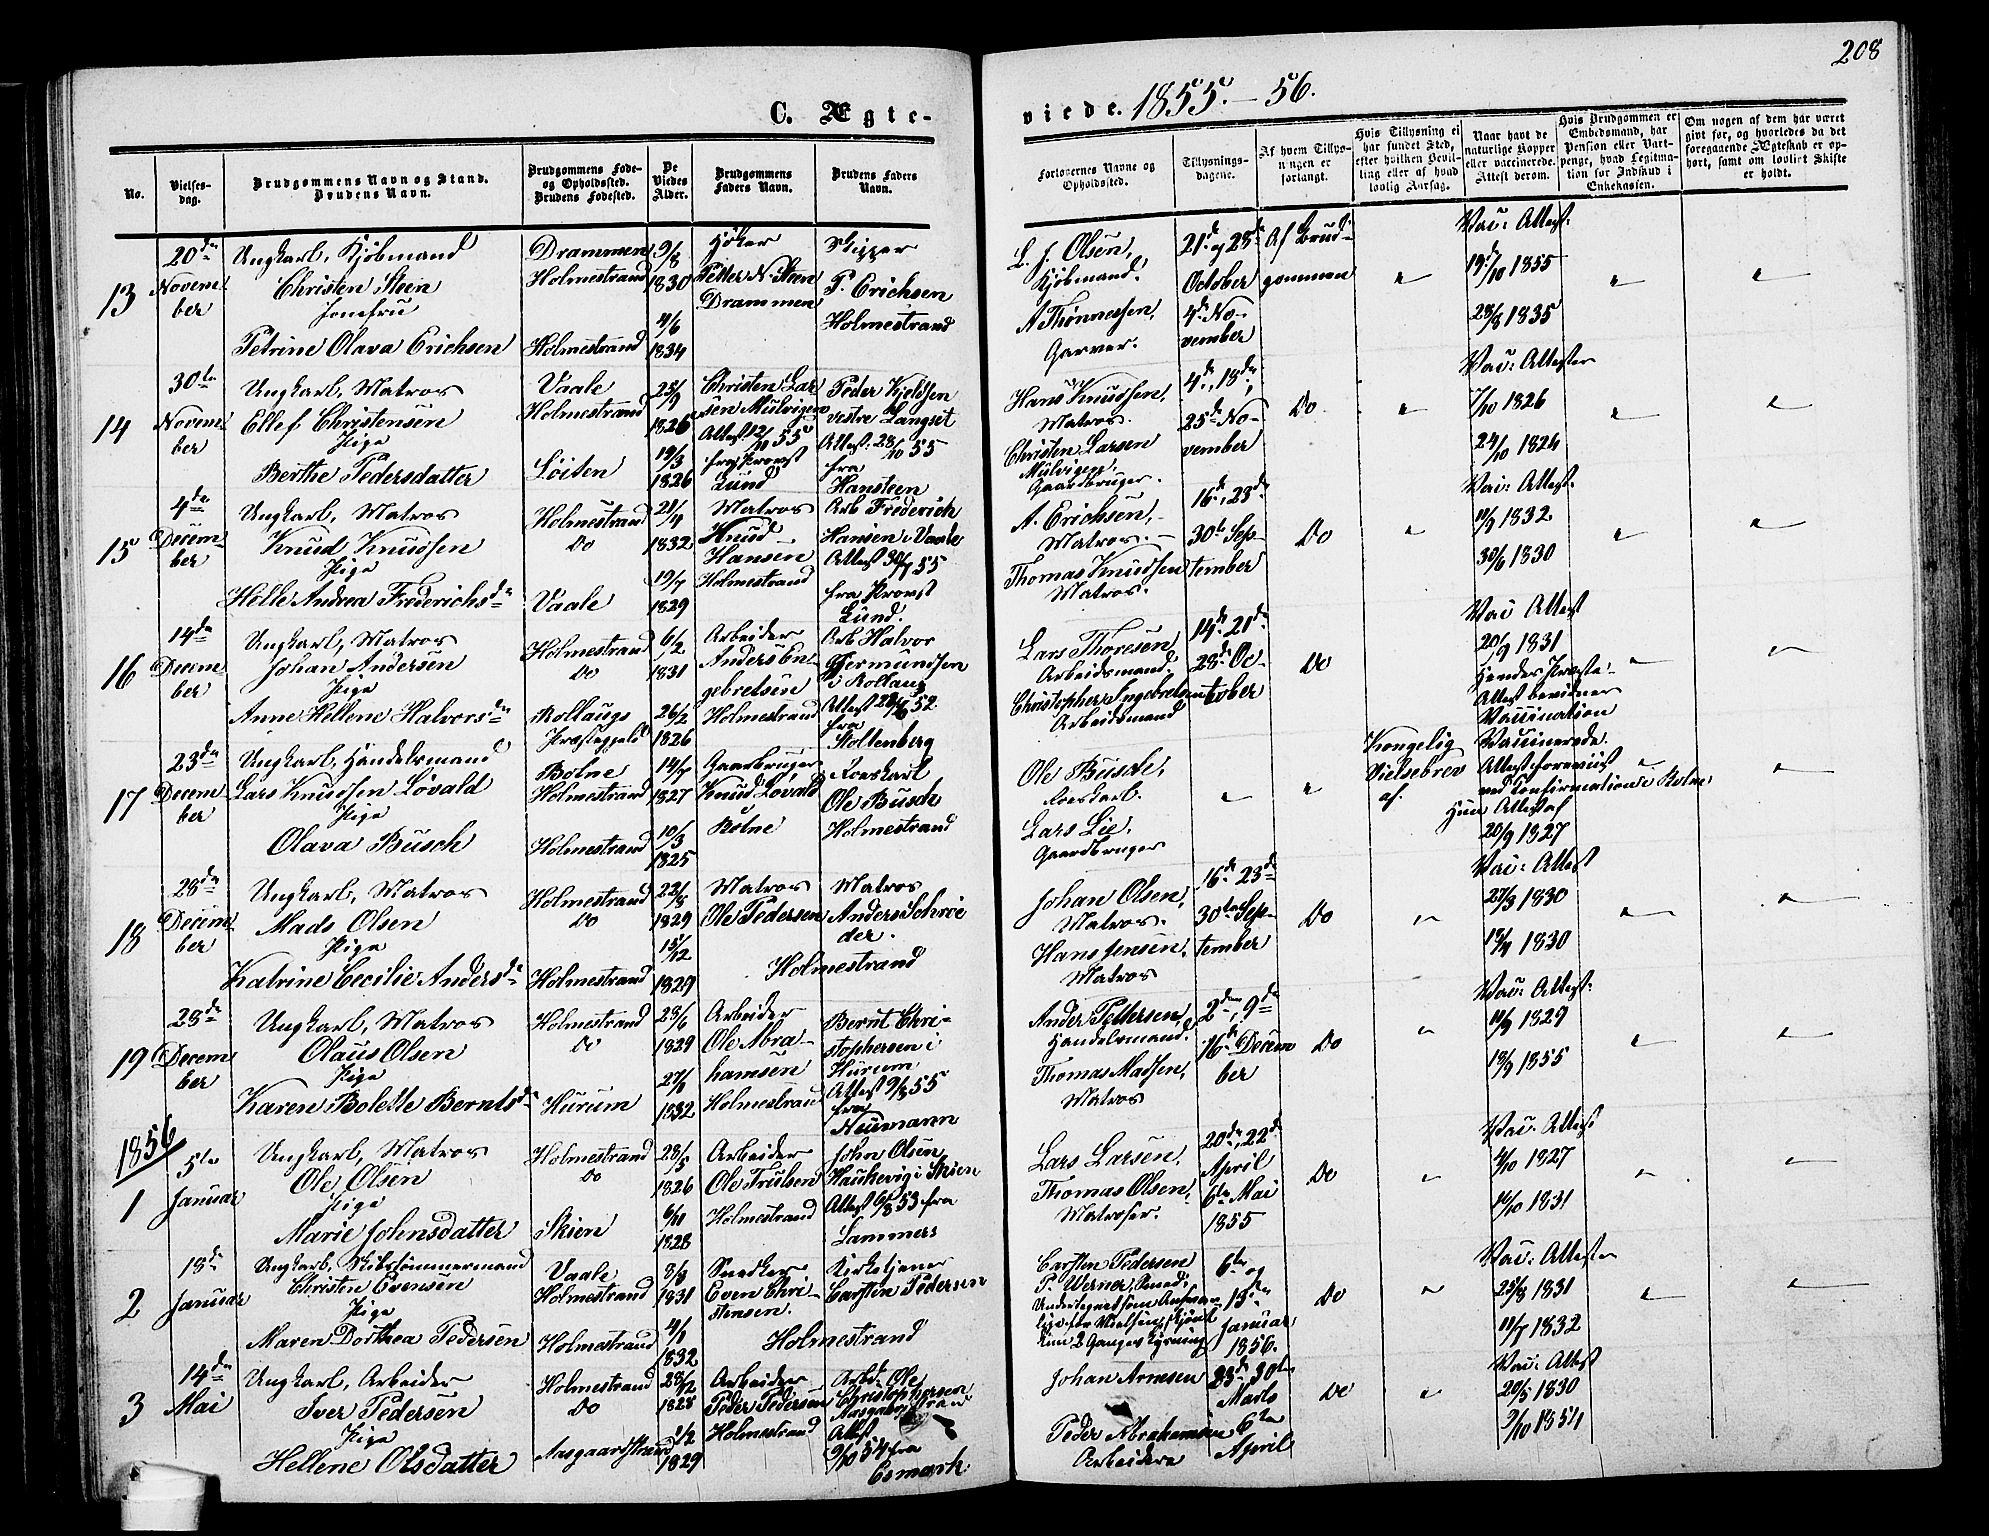 208
C. Ægte-
viede. 1855.-56.
No.
Vielses-
dag.
Brudgommens Navn og Stand.
Brudens Navn.
Brudgommens Føde-
og Opholdssted.
Brudens Fødested.
De
Viedes
Alder.
Brudgommens
Faders Navn.
Brudens Faders
Navn.
Forlovernes Navne og
Opholdssted.
Tillysnings-
dagene.
Af hvem Tillys-
ningen er
forlangt.
Hvis Tillysning ei
har fundet Sted,
efter hvilken Bevil-
ling eller af hvad
lovlig Aarsag.
Naar havt de
naturlige Kopper
eller vaccinerede.
Attest derom.
Hvis Brudgommen er
Embedsmand, har
Pension eller Vart-
penge, hvad Legitima-
tion for Indskud i
Enkekassen.
Om nogen af dem har været
gift før, og hvorledes da det
foregaaende Ægteskab er op-
hørt, samt om lovligt Skifte
er holdt.
13
20de
Novem
ber
Ungkarl, Kjøbmand
Christen Steen
Jomfru
Petrine Olava Erichsen
Drammen
Holmestrand
Holmestrand
9/8
1830
4/6
1834
Petter N. Steen
Drammen
Skipper
P. Erichsen
Holmestrand
L. J. Olsen,
Kjøbmand.
A Thønnessen,
Garver.
21de og 28de
October
4de No-
vember
Af Brud-
gommen
Vac: Attest:
19/10 1855
28/8 1835
14
30te
Novem
ber
Ungkarl, Matros
Ellef Christensen
Pige
Berthe Pedersdatter
Vaale
Holmestrand
Løiten
25/9
1826
19/3
1826
Christen Lar
sen Mulvigen
Attest 12/10 55
fra Provst
Lund
Peder Kjeldsen
vestre Langset
Attest. 28/10 55
fra
Hansteen
Hans Knudsen,
Matros.
Christen Larsen
Mulvigen,
Gaardbruger.
4de, 18de,
25de No-
vember
Do
Vac: Attester
7/10 1826
24/10 1824
15
4de
Decem-
ber
Ungkarl, Matros
Knud Knudsen
Pige
Helle Andrea Frederichsdr
Holmestrand
Do
Vaale
21/4
1832
19/7
1829
Matros
Knud
Hansen
Holmestrand
Arb Frederich
Hansen i Vaale
Attest 30/7 55
fra Provst
Lund.
A. Erichsen,
Matros.
Thomas Knudsen
Matros.
16de, 23de
30te Sep-
tember
Do
Vac: Attest.
11/9 1832
30/6 1830
16
14de
Decem
ber
Ungkarl, Matros
Johan Andersen
Pige
Anne Hellene Halvorsdr
Holmestrand
Do
Rollaugs
Præstegjeld
6/2
1831
26/2
1826
Arbeider
Anders En-
gebretsen
Holmestrand
Arb Halvor
Gjermundsen
i Rollaug
fra
Stoltenberg
Lars Thoresen,
Arbeidsmand.
Christopher Ingebretsen
Arbeidsmand
14de, 21de
28de Oc-
tober
Do
Vac Attest
20/9 1831
Hendes Præste-
Attest bevidner
Vaccination
17
23de
Decem
ber
Ungkarl, Handelsmand
Lars Knudsen Løvald
Pige
Olava Busch
Botne
Holmestrand
Holmestrand
14/7
1827
10/3
1825
Gaardbruger
Knud Løvald
Botne
Ole Busch
Holmestrand
Ole Busch,
Lars Lie,
Gaardbruger
Kongelig
Vielsebrev
af.
Vaccinerede.
Attest foreviist
ved Confirmation i Botne
Hun Attest af
20/9 1827
18
28de
Decem
ber
Ungkarl, Matros
Mads Olsen
Pige
Katrine Cecilie Andersdr
Holmestrand
Do
Holmestrand
23/5
1829
15/12
1829
Matros
Ole Pedersen
Matros
Anders Schrøe
der.
Holmestrand
Johan Olsen,
Matros.
Hans Jensen,
Matros
16de 23de
30te Sep-
tember
Do
Vac: Attest
27/3 1830
13/9 1830
19
28de
Decem
ber
Ungkarl, Matros
Olaus Olsen
Pige
Karen Bolette Berntsdr
Holmestrand
Do
Hurum
28/6
1829
27/9
1832
Arbeider
Ole Abra-
hamsen
Holmestrand
Bernt Chri-
stophersen i
Hurum
Attest 9/8 55
fra
Neumann
Ander Pettersen,
Handelsmand.
Thomas Madsen,
Matros
2den, 9de
16de Decem
ber
Do
Vac: Attest:
11/9 1829
13/9 1855
1856
1
5te
Januar
Ungkarl, Matros
Ole Olsen
Pige
Marie Johnsdatter
Holmestrand
Do
Skien
28/5
1826
6/11
1828
Arbeider
Ole Trulsen
Holmestrand
John Olsen
Haukevig i Skien
Attest 9/8 53 fra
Lammers
Lars Larsen,
Thomas Olsen,
Matroser.
20de, 22de
April
6te Mai
1855
Do
Vac. Attest
4/10 1827
14/10 1831
2
18de
Januar
Ungkarl, Skibstømmermand
Christen Evensen
Pige
Maren Dorthea Pedersen
Vaale
Holmestrand
Holmestrand
8/8
1831
4/1
1832
Snedker
Even Chri-
stensen.
Kirketjener
Carsten Pedersen
Holmestrand
Carsten Pedersen
P. Werner, Smed;
Undertegnet som Ansvar-
lige for Vielsen, skjønt
kun 2 Ganges Lysning
6te og
13de
Januar,
1856.
Do
Vac: Attester
25/8 1831
11/7 1832
3
14de
Mai
Ungkarl, Arbeider
Iver Pedersen
Pige
Hellene Olsdatter
Holmestrand
Do
Aasgaardstrand
28/12
1828
1/2
1829
Arbeider
Peder Pedersen
Holmestrand
Arbd. Ole
Christophersen
Aasgaardstrand
Attest
9/10 54 fra
Esmark.
Johan Arnesen
Peder Abrahamsen
Arbeidere
23de 30te
Marts
6te
April
Do
Vac: Attest
20/5 1830
9/10 1854